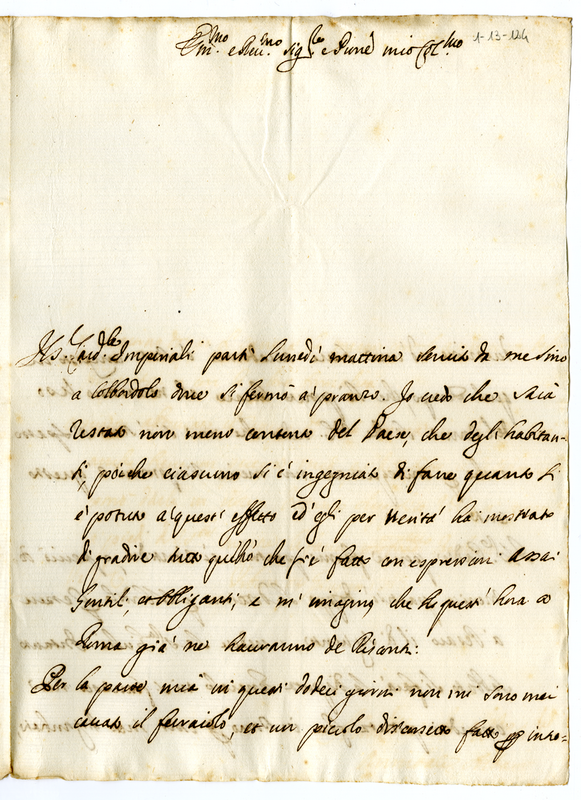 Em.mo e Rev.mo Sig.re e Pnē mio Col.mo 1-13-124
Il s. Card.le Imperiali partì Lunedì mattina servito da me sino
a Colbordolo dove si fermò a' pranzo. Io credo che sarà
restato non meno contento del Paese, che degli habitan-
ti, poiche ciascuno si è ingegniato di fare quanto si
è potuto a' questi effetto ed' egli per verità ha mostrato
di gradire tutto quello che si è fatto con espressioni assai
gentili, et obbliganti, e m' imagino, che a quest' hora a
Roma già ne hauranno de Riscontri:
Per la parte mia in questi dodeci giorni non mi sono mai
cavato il ferraiolo, et un picolo discorsetto fatto intro-